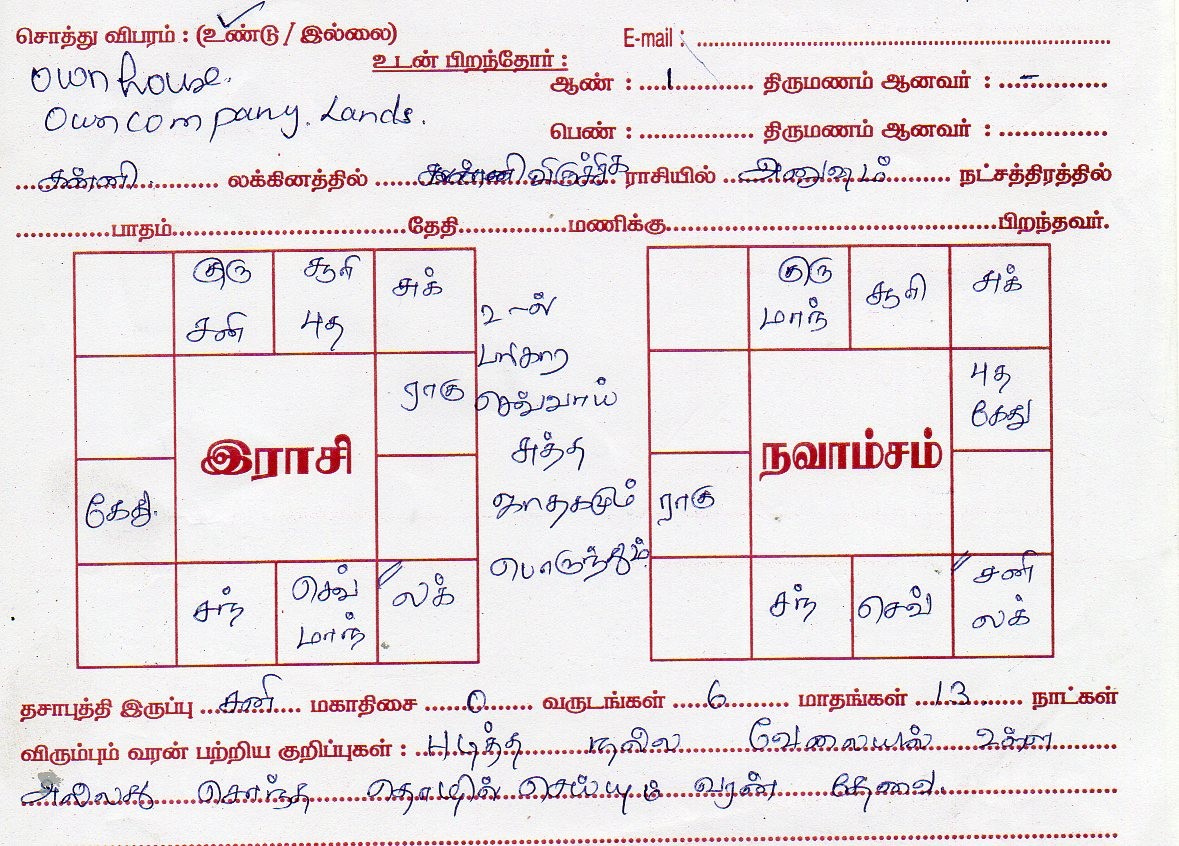 சொத்து விபரம் : (உண்டு / இல்லை)
E-mail :
own house.
உடன் பிறந்தோர் :
ஆண் : 1 திருமணம் ஆனவர் : -
own company. Lands.
பெண் : திருமணம் ஆனவர் :
கன்னி லக்கினத்தில் விருச்சிக ராசியில் அனுஷம் நட்சத்திரத்தில்
பாதம் தேதி மணிக்கு பிறந்தவர்.
குரு சூரி சுக்
சனி புத
ராகு
இராசி
கேது.
சந் செவ் லக்
மாந்
2-ல்
பரிகார
செவ்வாய்
சுத்த
ஜாதகமும்
பொருந்தும்.
குரு சூரி சுக்
மாந்
புத
கேது
நவாம்சம்
ராகு
சந் செவ் சனி
லக்
தசாபுத்தி இருப்பு சனி மகாதிசை 0 வருடங்கள் 6 மாதங்கள் 13 நாட்கள்
விரும்பும் வரன் பற்றிய குறிப்புகள் : படித்த நல்ல வேலையில் உள்ள
அல்லது சொந்த தொழில் செய்யும் வரன் தேவை.